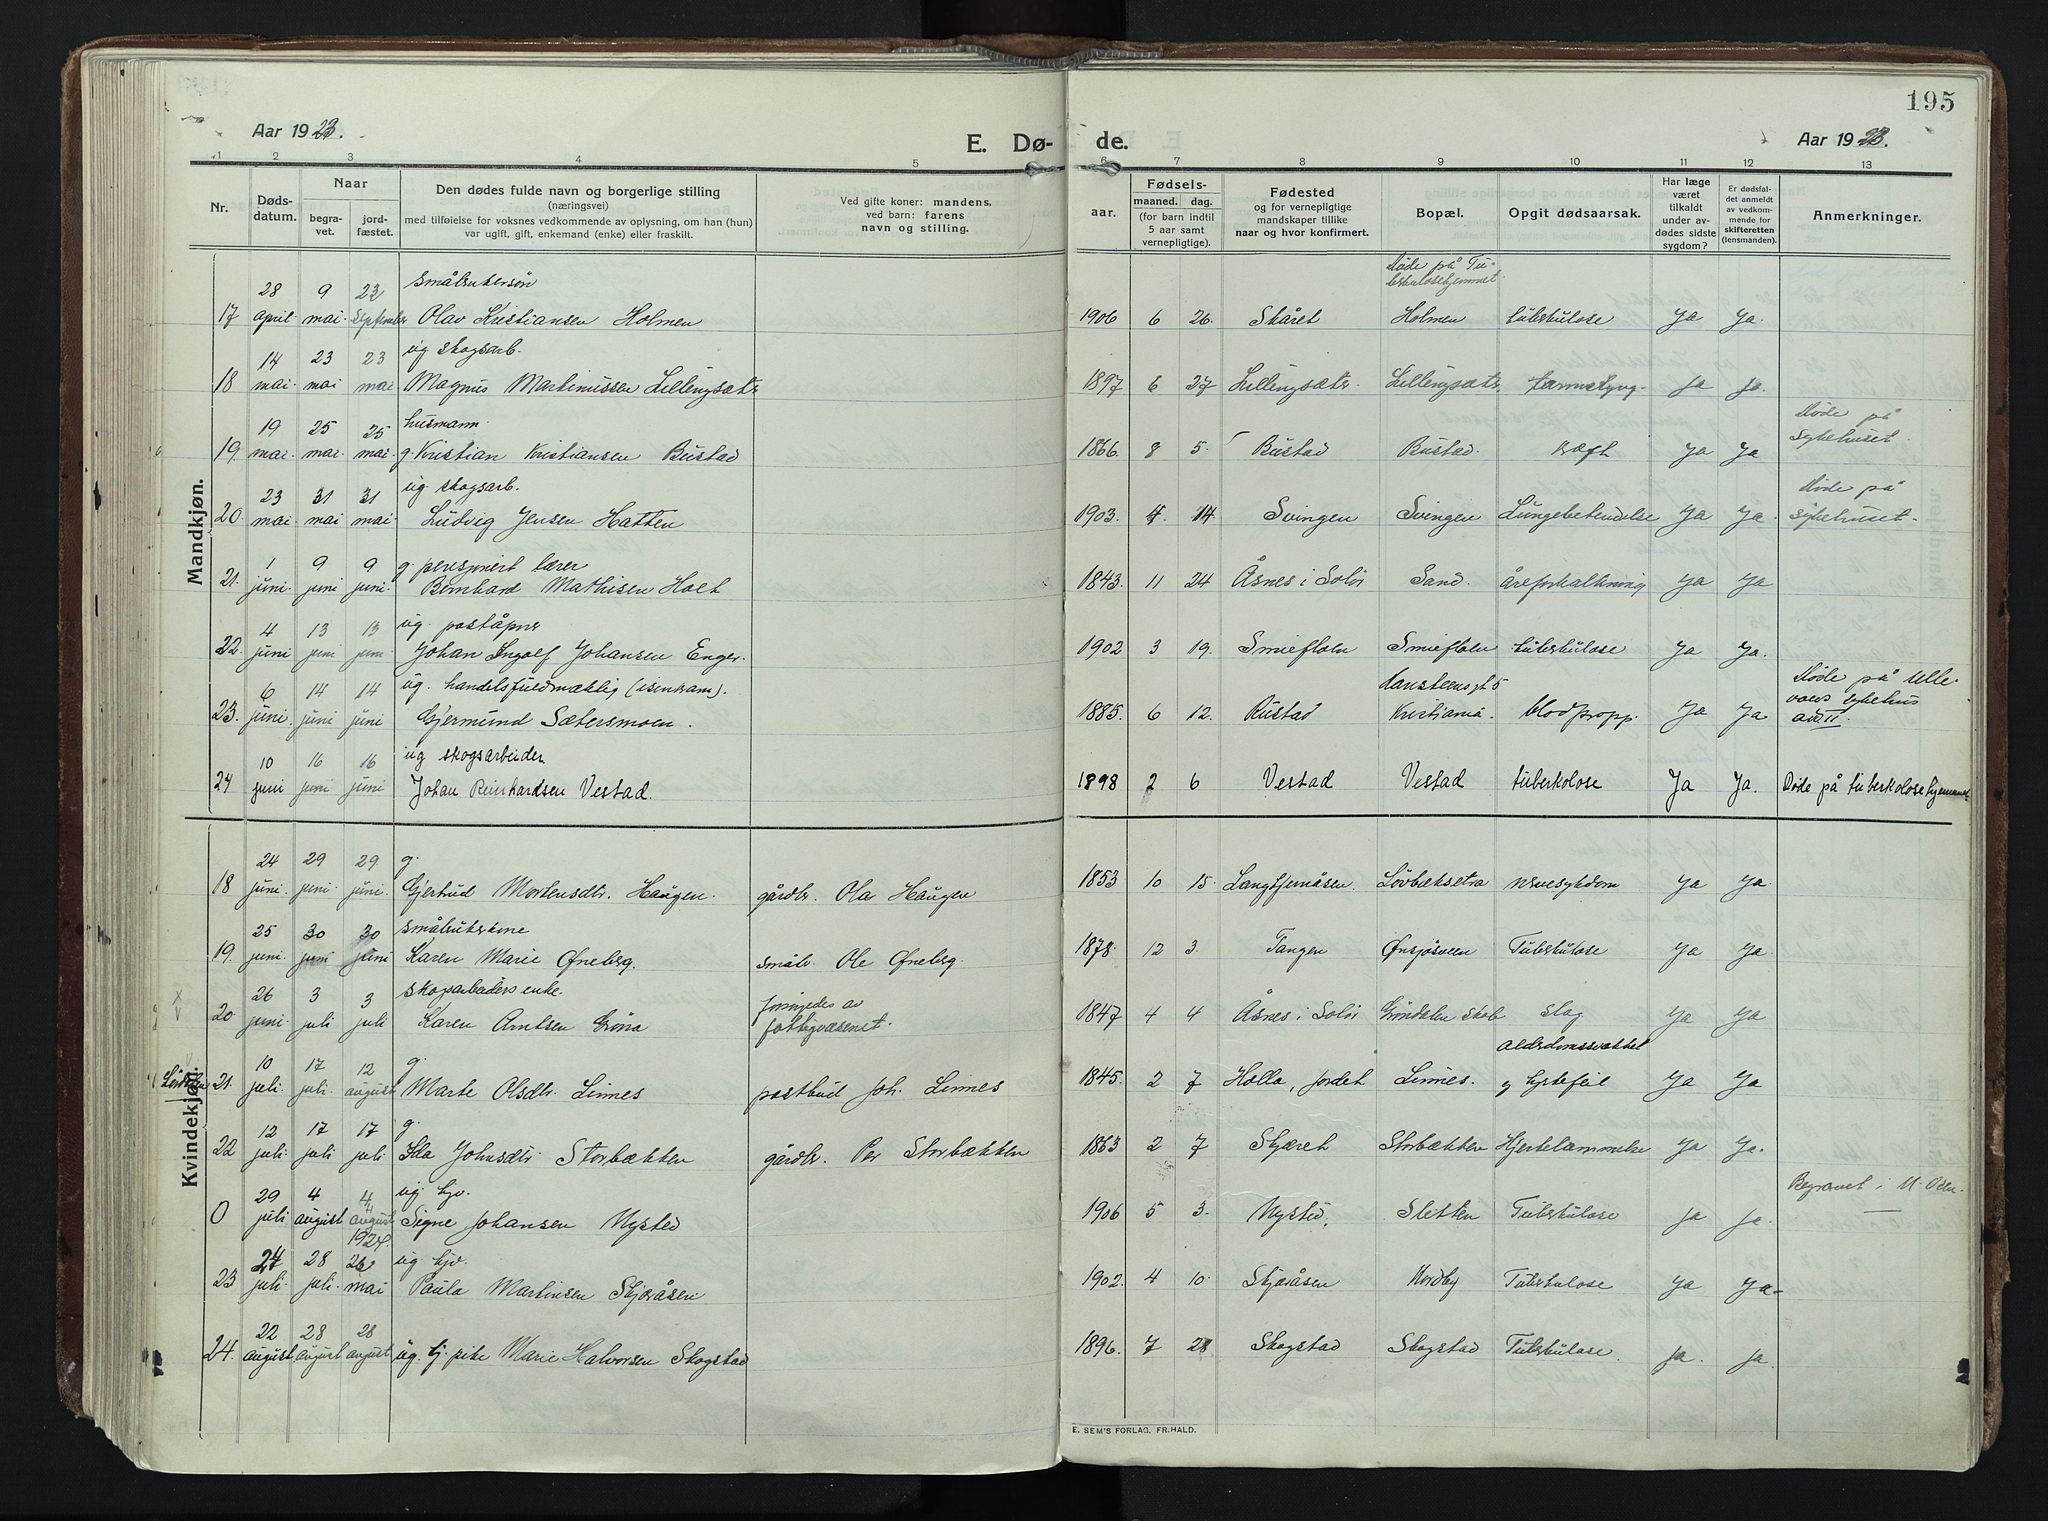 195
Aar 1923.
E. Dø-
de.
Aar 1923.
1 2 3 4 5 6 7 8 9 10 11 12 13
Nr.
Døds-
datum.
Naar
begra-
vet.
jord-
fæstet.
Den dødes fulde navn og borgerlige stilling
(næringsvei)
med tilføielse for voksnes vedkommende av oplysning, om han (hun)
var ugift, gift, enkemand (enke) eller fraskilt.
Ved gifte koner: mandens,
ved barn: farens
navn og stilling.
Fødsels-
aar.
maaned. dag.
(for barn indtil
5 aar samt
vernepligtige).
Fødested
og for vernepligtige
mandskaper tillike
naar og hvor konfirmert.
Bopæl.
Opgit dødsaarsak.
Har læge
været
tilkaldt
under av-
dødes sidste
sygdom?
Er dødsfal-
det anmeldt
av vedkom-
mende for
skifteretten
(lensmanden).
Anmerkninger.
Mandkjøn.
28 9 23 småbrukersøn Døde på Tu-
berkulosehjemmet
17 april. mai. September Olav Kristiansen Holmen 1906 6 26. Skåret Holmen tuberkulose Ja Ja.
14 23 23 ug skogsarb.
18 mai. mai mai Magnus Martinussen Lillengsætr 1897 6 27 Lillengsætr. Lillengsætr. Ja Ja.
19 25 25 husmann. Døde på
19. mai. mai. mai. g. Kristian Kristiansen Bustad 1866. 8 5. Bustad Bustad. kræft Ja Ja sykehuset.
23 31 31 ug. skogsarb. Døde på
20. mai mai mai. Ludvig Jensen Hatten 1903. 4. 14 Svingen Svingen Lungebetendelse Ja Ja. sykehuset.
1 9 9 g. pensjonert lærer
21. juni. juni juni. Bernhard Mathisen Holt 1843. 11 24 Åsnes i Solør Sand. åreforkalkning Ja Ja
4 13 13 ug. poståpner
22. juni juni juni Johan Ingolf Johansen Enger. 1902 3 19. Smiefloen Smiefloen tuberkulose Ja Ja.
6 14 14 ug. handelsfuldmæktig (isenkram). Hansteensgt 5 Døde på Ulle-
23. juni. juni juni Gjermund Sætersmoen. 1885. 6 12. Rustad Kristiania. blodpropp. Ja Ja vaals sykehus
avd II.
10 16 16 ug skogsarbeider
24 juni juni juni Johan Reinhardsen Vestad. 1898 2 6 Vestad Vestad tuberkolose Ja Ja. Døde på tuberkolosehjemmet
Kvindekjøn.
24 29 29 g.
18 juni. juni. juni. Gjertrud Mortensdtr. Haugen. gårdbr. Ola Haugen 1853 10 15. Langtjernåsen. Lövbæksetra nervesykdom Ja Ja.
25 30 30 småbrukerkone
19. juni. juni juni Karen Marie Øneberg. småbr. Ole Øneberg. 1878. 12 3. Tangen Ønsjösveen Tuberkulose Ja Ja
26 3 3 skogsarbeiders enke. forsörgedes av
20 juni. juli juli Karen Arntsen Gröna fattigvæsenet. 1847 4 4 Åsnes i Solør Gröndalen skole slag Ja Ja
10 17 12 g. Alderdomssvækket
21. juli. juli. august Marte Olsdtr. Linnes postbud Joh. Linnes 1845. 2 7 Holla, Jordet Linnes. og hjertefeil Ja Ja
12 17 17 g.
22 juli. juli juli Ida Johnsdtr Storbækken gårdbr. Per Storbækken 1863 2 7 Skjæret Storbækken Hjertelammelse Ja Ja.
29 4 4 ug. hjv. Begravet i N. Osen.
0 juli august august Signe Johansen Nysted 1906 5 3. Nysted, Sletten Tuberkulose Ja Ja.
1924.
24 28 26 ug. hjv.
23 juli. juli. mai Paula Martinsen Skjæråsen 1902. 4 10. Skjæråsen Nordby Tuberkulose Ja Ja.
22 28 28
24. august august august ug. tj. pike Marie Halvorsen Skogstad 1896. 7 28 Skogstad Skogstad Tuberkulose. Ja. Ja.
E. SEM'S FORLAG, FR.HALD.